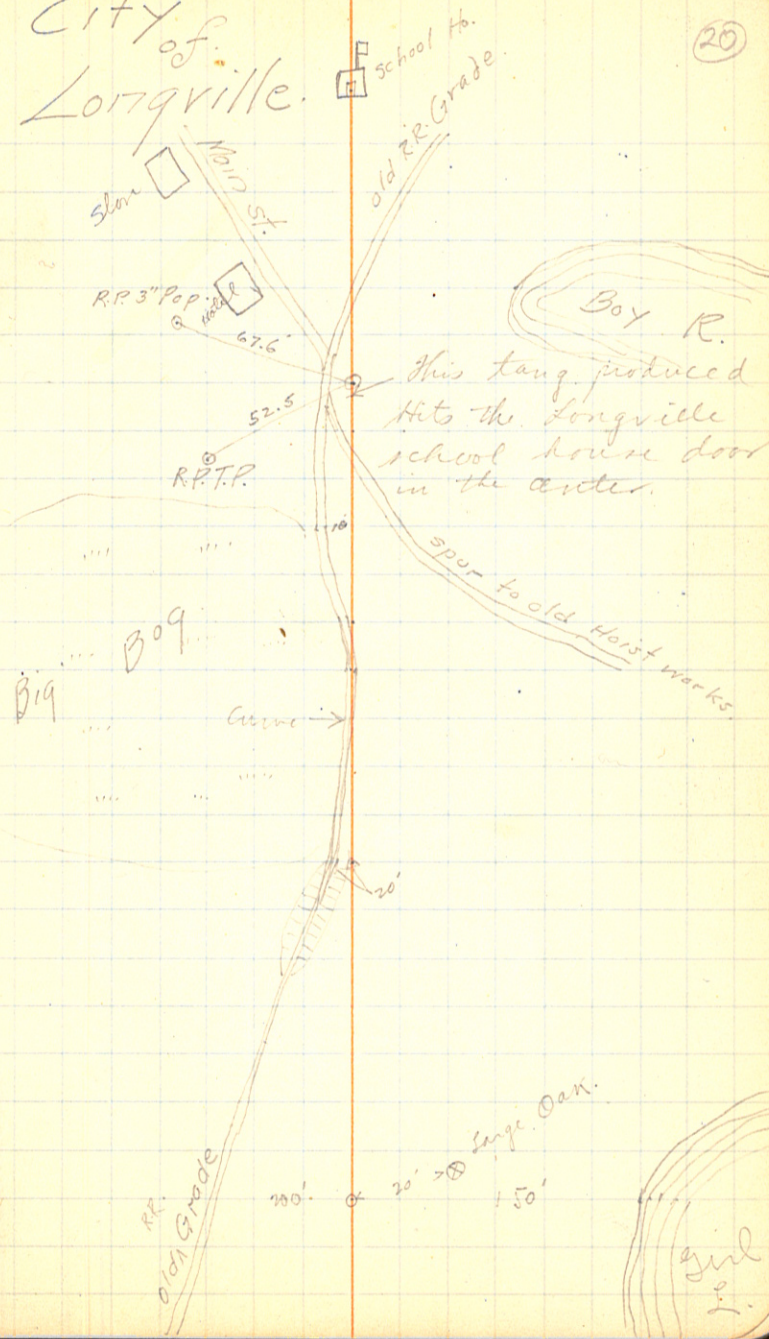 City
of
Longville.
20
School Ho.
old R.R. Grade.
Main St.
Store
R.P. 3" Pop.
Hotel
67.6'
Boy R.
This tang. produced
Hits the Longville
school house door
in the center.
52.5
R.P.T.P.
10'
spur to old Hoist works.
Big Bog
Curve →
20'
Large Oak.
200'
20'
150'
R.R.
old ^ Grade
Girl
L.